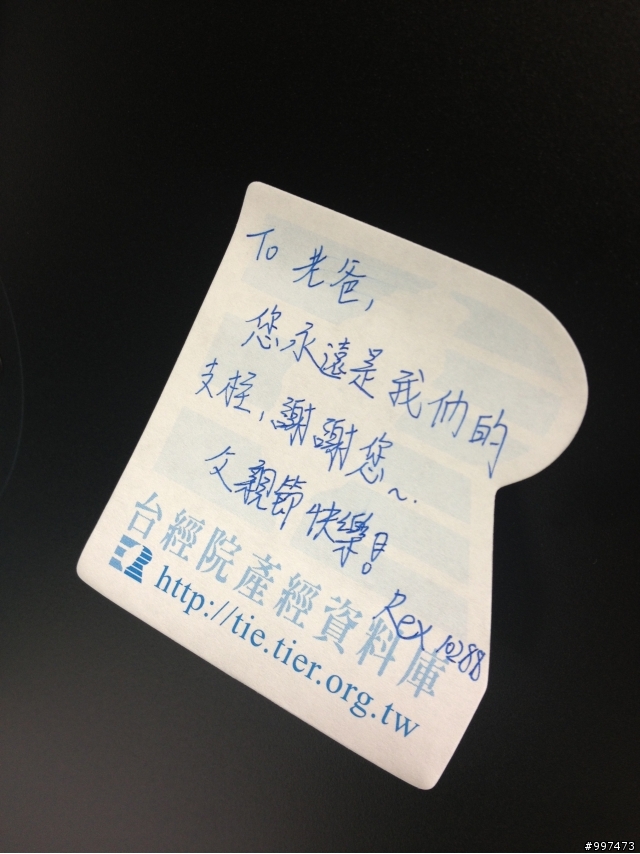 To 老爸,
您永遠是我們的
支柱,謝謝您~.
父親節快樂!
Rex 10288
台經院產經資料庫
http://tie.tier.org.tw
#997473